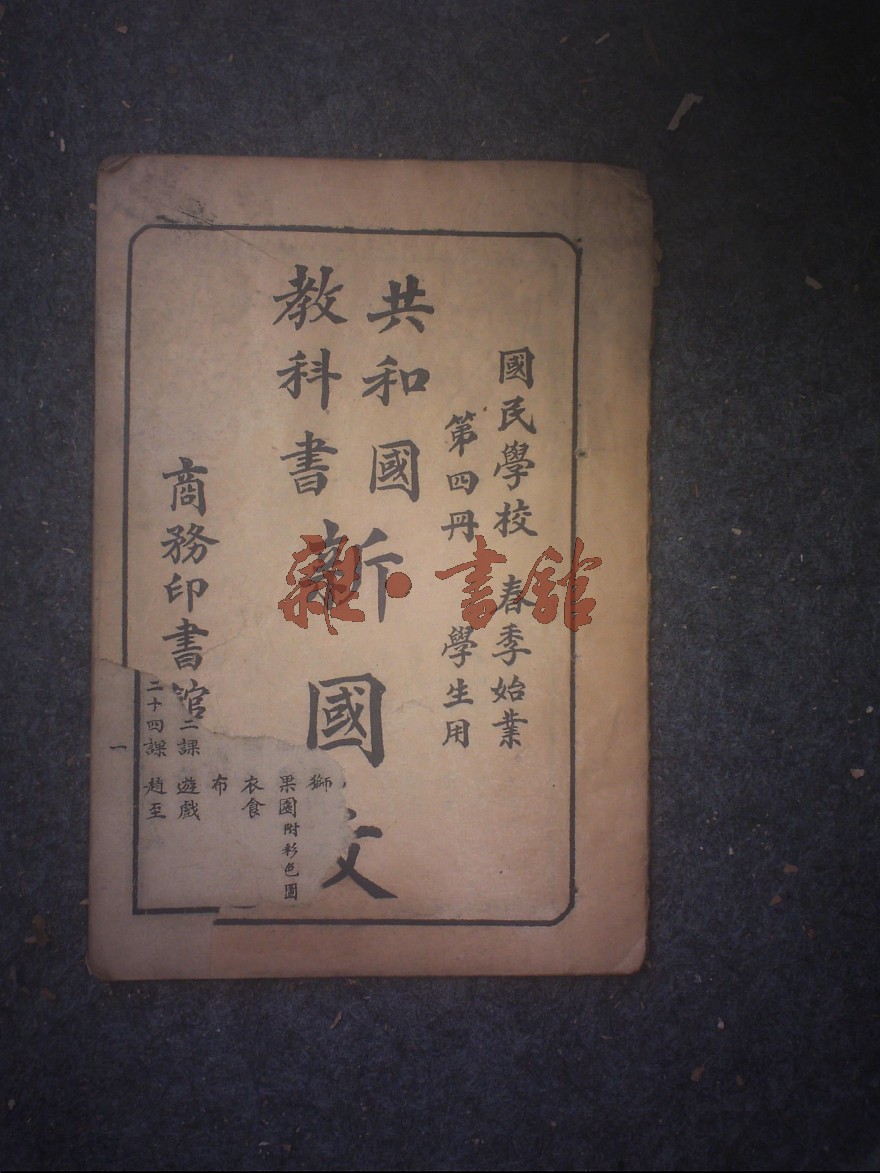 國民學校 春季始業
第四冊 學生用
共和國
教科書
新國文
商務印書館
獅
果園附彩色圖
衣食
布
二課 遊戲
二十四課 趙至
一
雜·書館